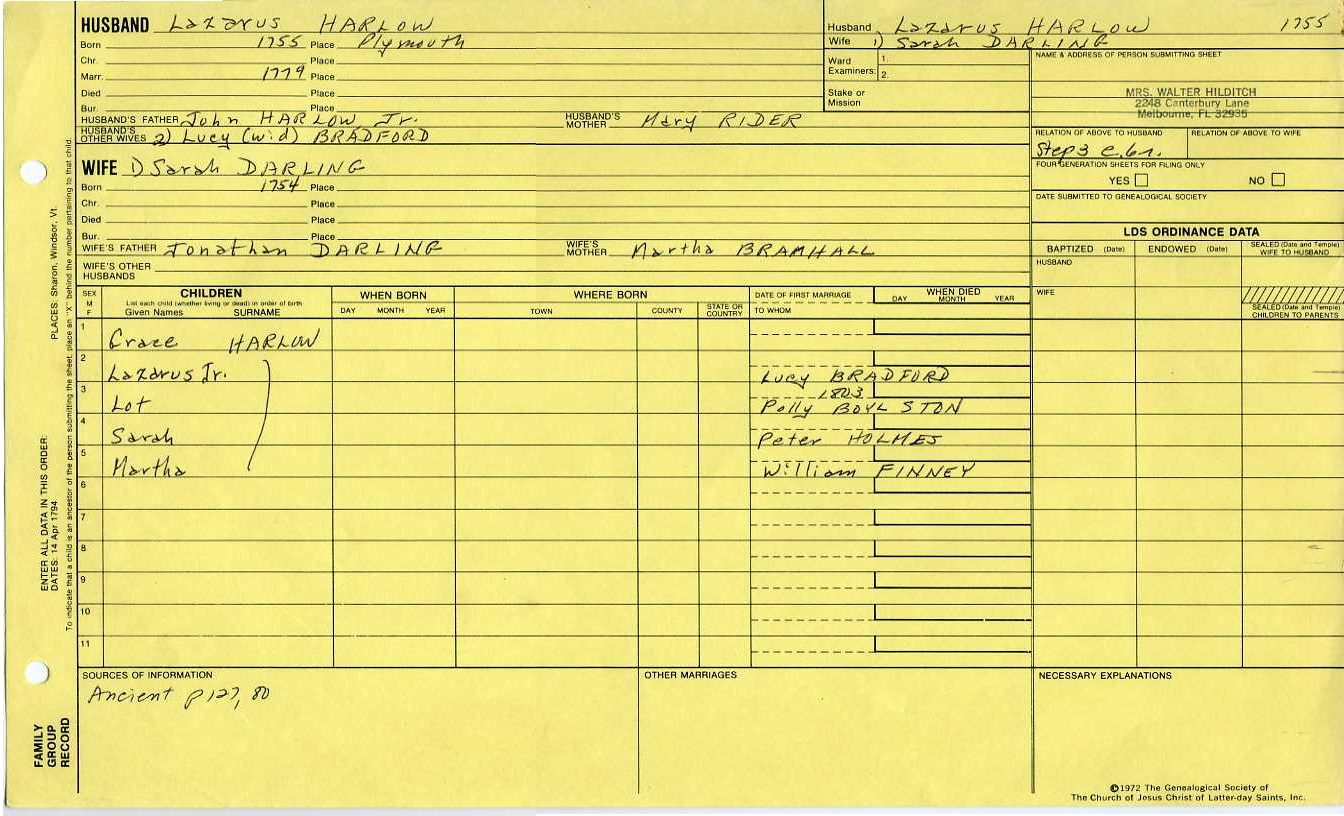 HUSBAND Lazarus HARLOW
Born 1755 Place Plymouth
Chr. Place
Marr. 1779 Place
Died Place
Bur. Place
HUSBAND'S FATHER John HARLOW Jr. HUSBAND'S MOTHER Mary RIDER
HUSBAND'S OTHER WIVES 2) Lucy (wid) BRADFORD
WIFE 1) Sarah DARLING
Born 1754 Place
Chr. Place
Died Place
Bur. Place
WIFE'S FATHER Jonathan DARLING WIFE'S MOTHER Martha BRAMHALL
WIFE'S OTHER HUSBANDS
Husband Lazarus HARLOW 1755
Wife 1) Sarah DARLING
Ward Examiners: 1.
2.
Stake or Mission
NAME & ADDRESS OF PERSON SUBMITTING SHEET
MRS. WALTER HILDITCH
2248 Canterbury Lane
Melbourne, FL 32935
RELATION OF ABOVE TO HUSBAND RELATION OF ABOVE TO WIFE
Step 3
FOUR GENERATION SHEETS FOR FILING ONLY
YES NO
DATE SUBMITTED TO GENEALOGICAL SOCIETY
LDS ORDINANCE DATA
BAPTIZED (Date) ENDOWED (Date) SEALED (Date and Temple) WIFE TO HUSBAND
HUSBAND
WIFE
SEALED (Date and Temple) CHILDREN TO PARENTS
SEX M F CHILDREN WHEN BORN WHERE BORN DATE OF FIRST MARRIAGE WHEN DIED
List each child (whether living or dead) in order of birth
Given Names SURNAME DAY MONTH YEAR TOWN COUNTY STATE OR COUNTRY TO WHOM DAY MONTH YEAR
1 Grace HARLOW
2 Lazarus Jr. Lucy BRADFORD
3 Lot 1803 Polly BOYLSTON
4 Sarah Peter HOLMES
5 Martha William FINNEY
6
7
8
9
10
11
SOURCES OF INFORMATION
Ancient p 127, 80
OTHER MARRIAGES
NECESSARY EXPLANATIONS
©1972 The Genealogical Society of
The Church of Jesus Christ of Latter-day Saints, Inc.
ENTER ALL DATA IN THIS ORDER:
DATES: 14 Apr 1794 PLACES: Sharon, Windsor, Vt.
To indicate that a child is an ancestor of the person submitting the sheet, place an "X" behind the number pertaining to that child.
FAMILY
GROUP
RECORD